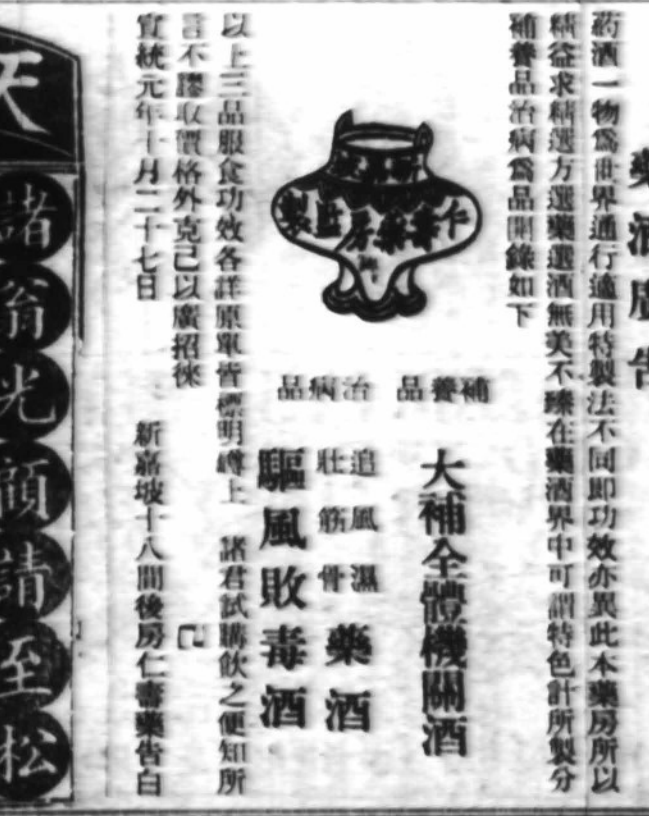 藥酒廣告
药酒一物爲世界通行適用特製法不同即功效亦異此本藥房所以
精益求精選方選藥選酒無美不臻在藥酒界中可謂特色計所製分
補養品治病爲品開錄如下
仁壽藥房監製
補養品
大補全體機關酒
治病品
追風濕
壯筋骨
藥酒
驅風敗毒酒
以上三品服食功效各詳原單皆標明罇上 諸君試購飲之便知所
言不謬取價格外克己以廣招徠
宣統元年十月二十七日 新嘉坡十八間後房仁壽藥告白
天
諸翁光顧請至松